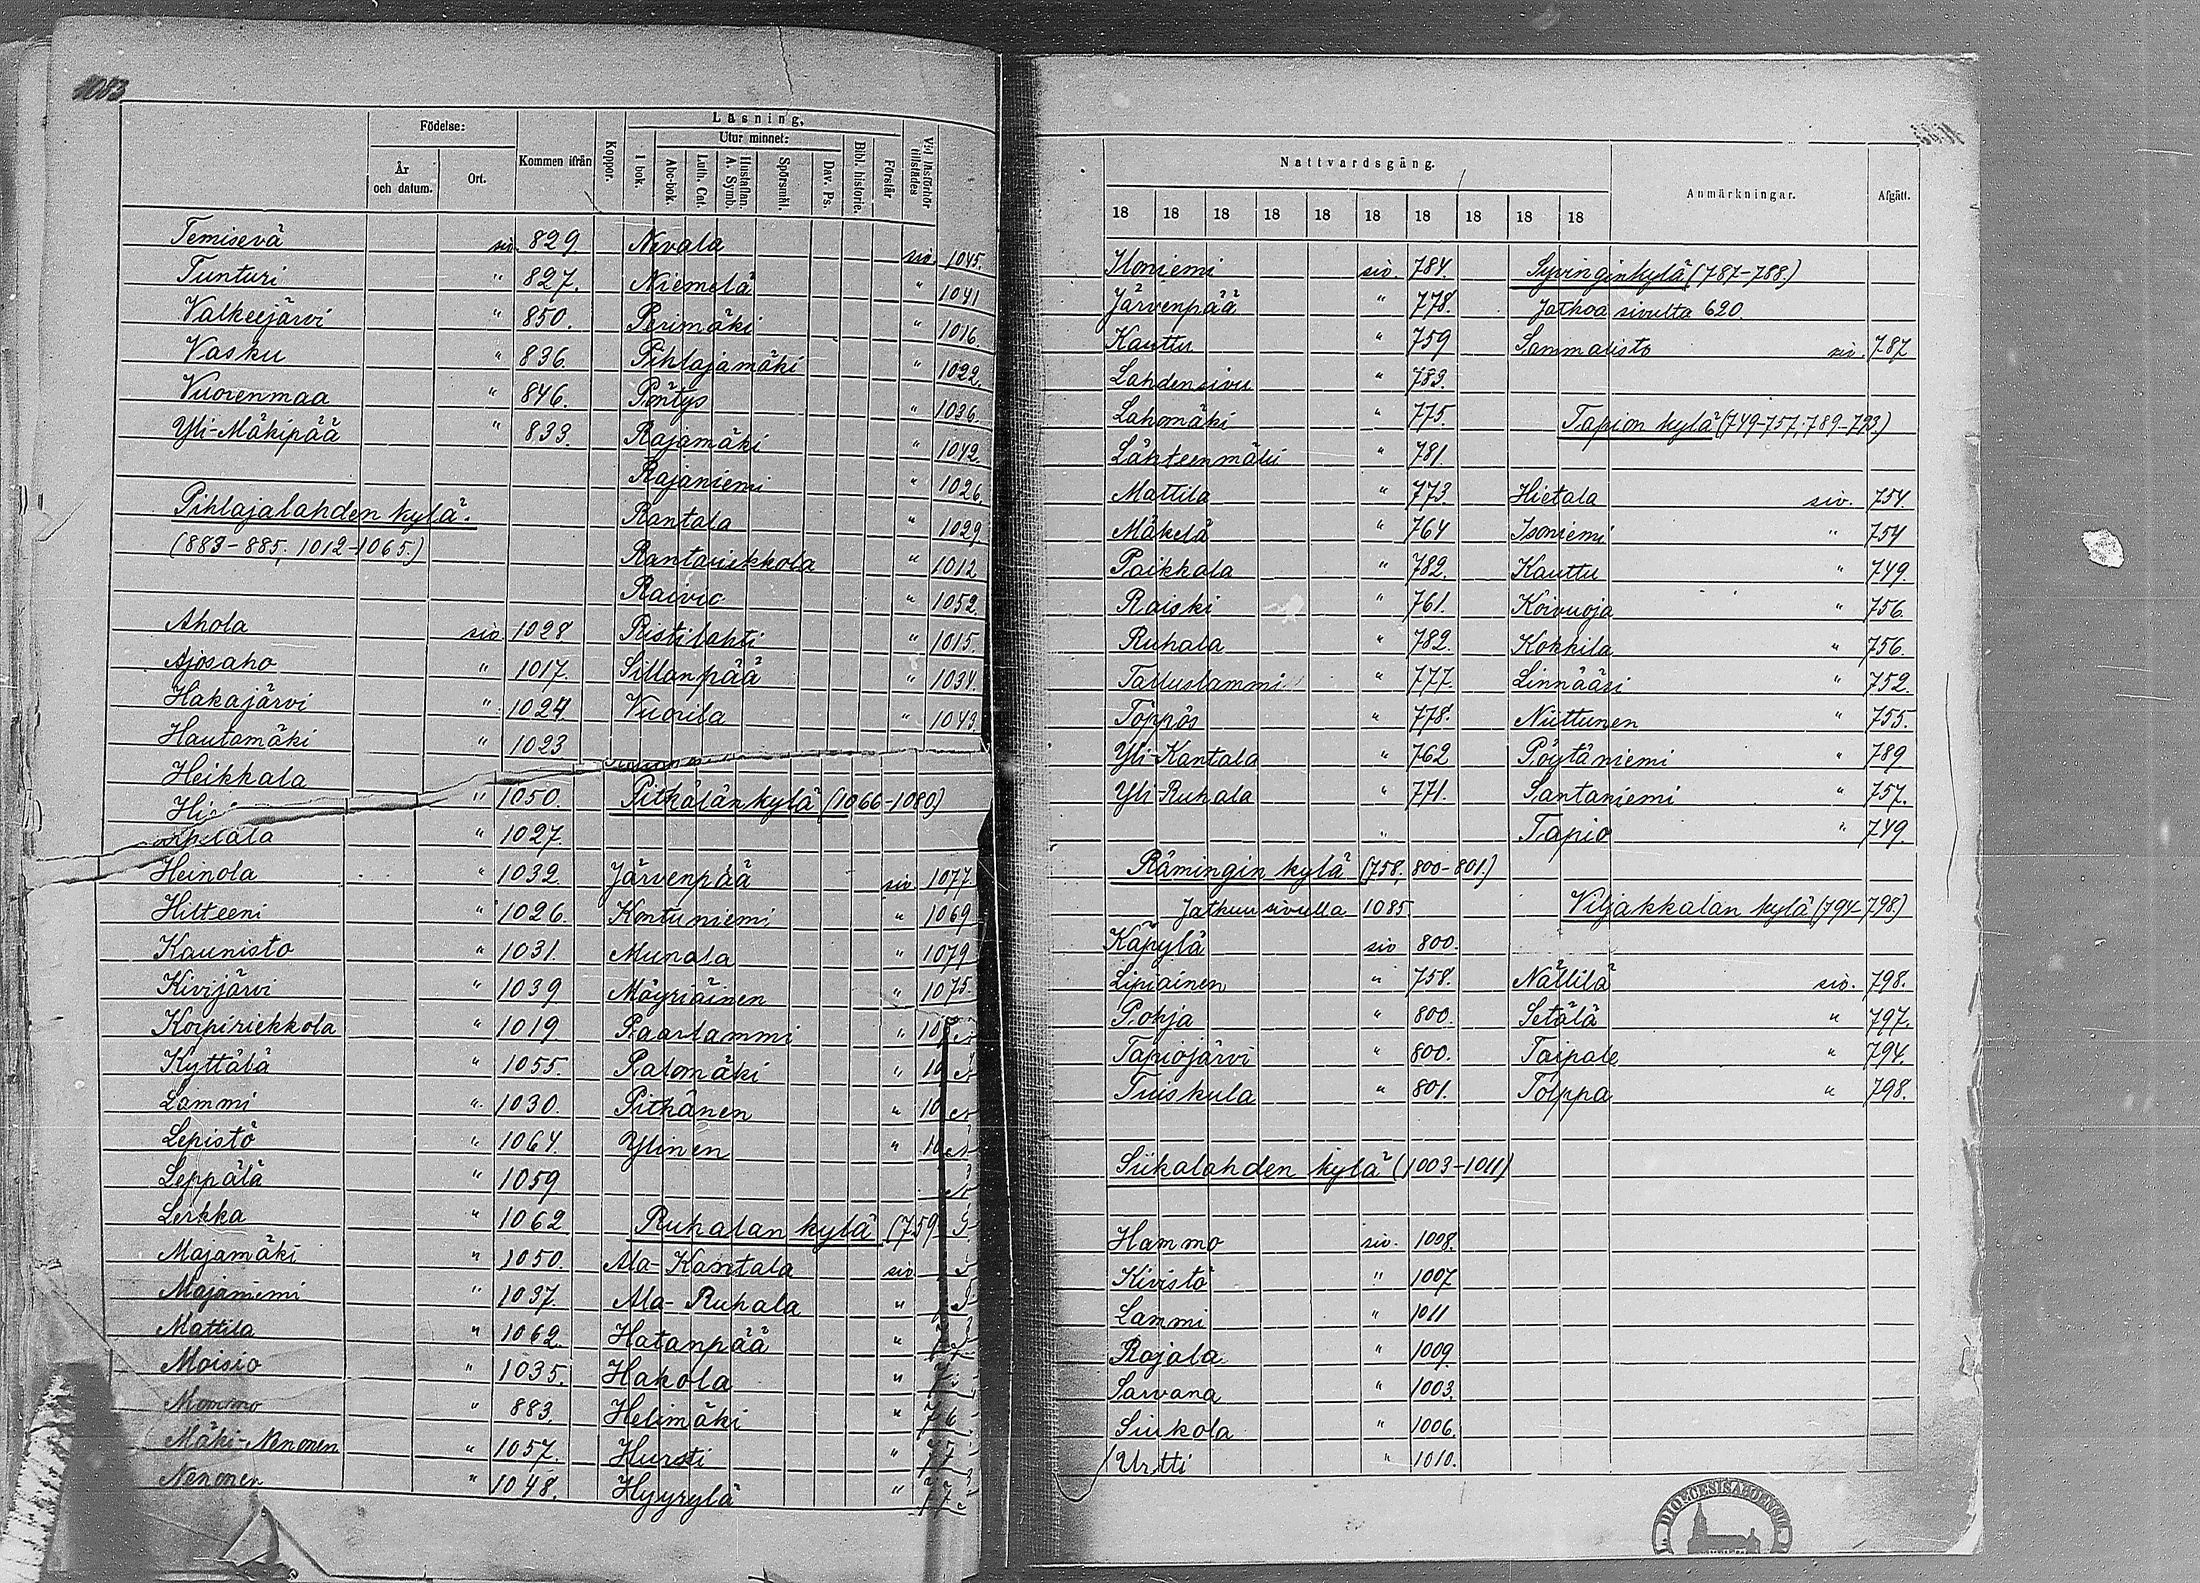 1083
Födelse:
År och datum.
Ort.
Kommen ifrån
Koppor.
Läsning.
I bok.
Utur minnet:
Abc-bok.
Luth. Cat.
Hustaflan. A. Symb.
Spörsmål.
Dav. Ps.
Bibl. historie.
Förstår
Vid läsförhör tillstädes
Temisevä siv. 829.
Tunturi " 827.
Valkeejärvi " 850.
Vasku " 836.
Vuorenmaa " 846.
Yli-Mäkipää " 833.
Pihlajalahden kylä.
(883-885, 1012-1065.)
Ahola siv 1028
Ajosaho " 1017.
Hakajärvi " 1024.
Hautamäki " 1023
Heikkala
" 1050.
" 1027.
Heinola " 1032.
Hilteeni " 1026.
Kaunisto " 1031.
Kivijärvi " 1039
Korpiriekkola " 1019
Kyttälä " 1055.
Lammi " 1030.
Lepistö " 1064.
Leppälä " 1059
Lerkka " 1062
Majamäki " 1050.
Majaniemi " 1037.
Mattila " 1062.
Moisio " 1035.
Mommo " 883.
Mäki-Nenonen " 1057.
Nenonen " 1048.
Nevala siv. 1045.
Niemelä " 1041
Perimäki " 1016.
Pihlajamäki " 1022.
Pöntys " 1036.
Rajamäki " 1042.
Rajaniemi " 1026.
Rantala " 1029
Rantariekkola " 1012
Raivio " 1052.
Ristilahti " 1015.
Sillanpää " 1034.
Vuorila " 1043.
Pitkälän kylä (1066-1080)
Järvenpää siv 1077.
Kontuniemi " 1069
Munala " 1079
Mäyriäinen " 1075.
Paarlammi "
Palomäki "
Pitkänen "
Ylinen "
Ruhalan kylä (759
Ala-Kantala siv
Ala-Ruhala "
Hatanpää "
Hakola "
Helimäki "
Hursti "
Hyyrylä "
Nattvardsgång.
18 18 18 18 18 18 18 18 18 18
Anmärkningar.
Afgått.
Iloniemi siv. 784.
Järvenpää " 778.
Kauttu " 759
Lahdensivu " 783.
Lahomäki " 775.
Lähteenmäki " 781.
Mattila " 773.
Mäkelä " 764
Paikkala " 782.
Raiski " 761.
Ruhala " 782.
Talluslammi " 777.
Töppös " 778.
Yli-Kantala " 762
Yli-Ruhala " 771.
"
Rämingin kylä (758, 800-801.)
Jatkuu sivulla 1085
Käpylä siv 800.
Lipiäinen " 758.
Pohja " 800.
Tapiojärvi " 800.
Tuiskula " 801.
Siikalahden kylä (1003-1011)
Hammo siv. 1008.
Kivistö " 1007
Lammi " 1011
Rajala " 1009.
Sarvana " 1003.
Siukola " 1006.
Urtti " 1010.
Syvinginkylä (787-788.)
Jatkoa sivulta 620.
Sammalisto siv. 787
Tapion kylä (749-757, 789-793)
Hietala siv. 754.
Isoniemi " 754
Kauttu " 749.
Koivuoja " 756.
Kokkila " 756.
Linnääsi " 752.
Niittunen " 755.
Pöytäniemi " 789
Santaniemi " 757.
Tapio " 749.
Viljakkalan kylä (794-798.)
Nällilä siv. 798.
Setälä " 797.
Taipale " 794.
Tolppa " 798.
DIOECESIS ABOENSIS